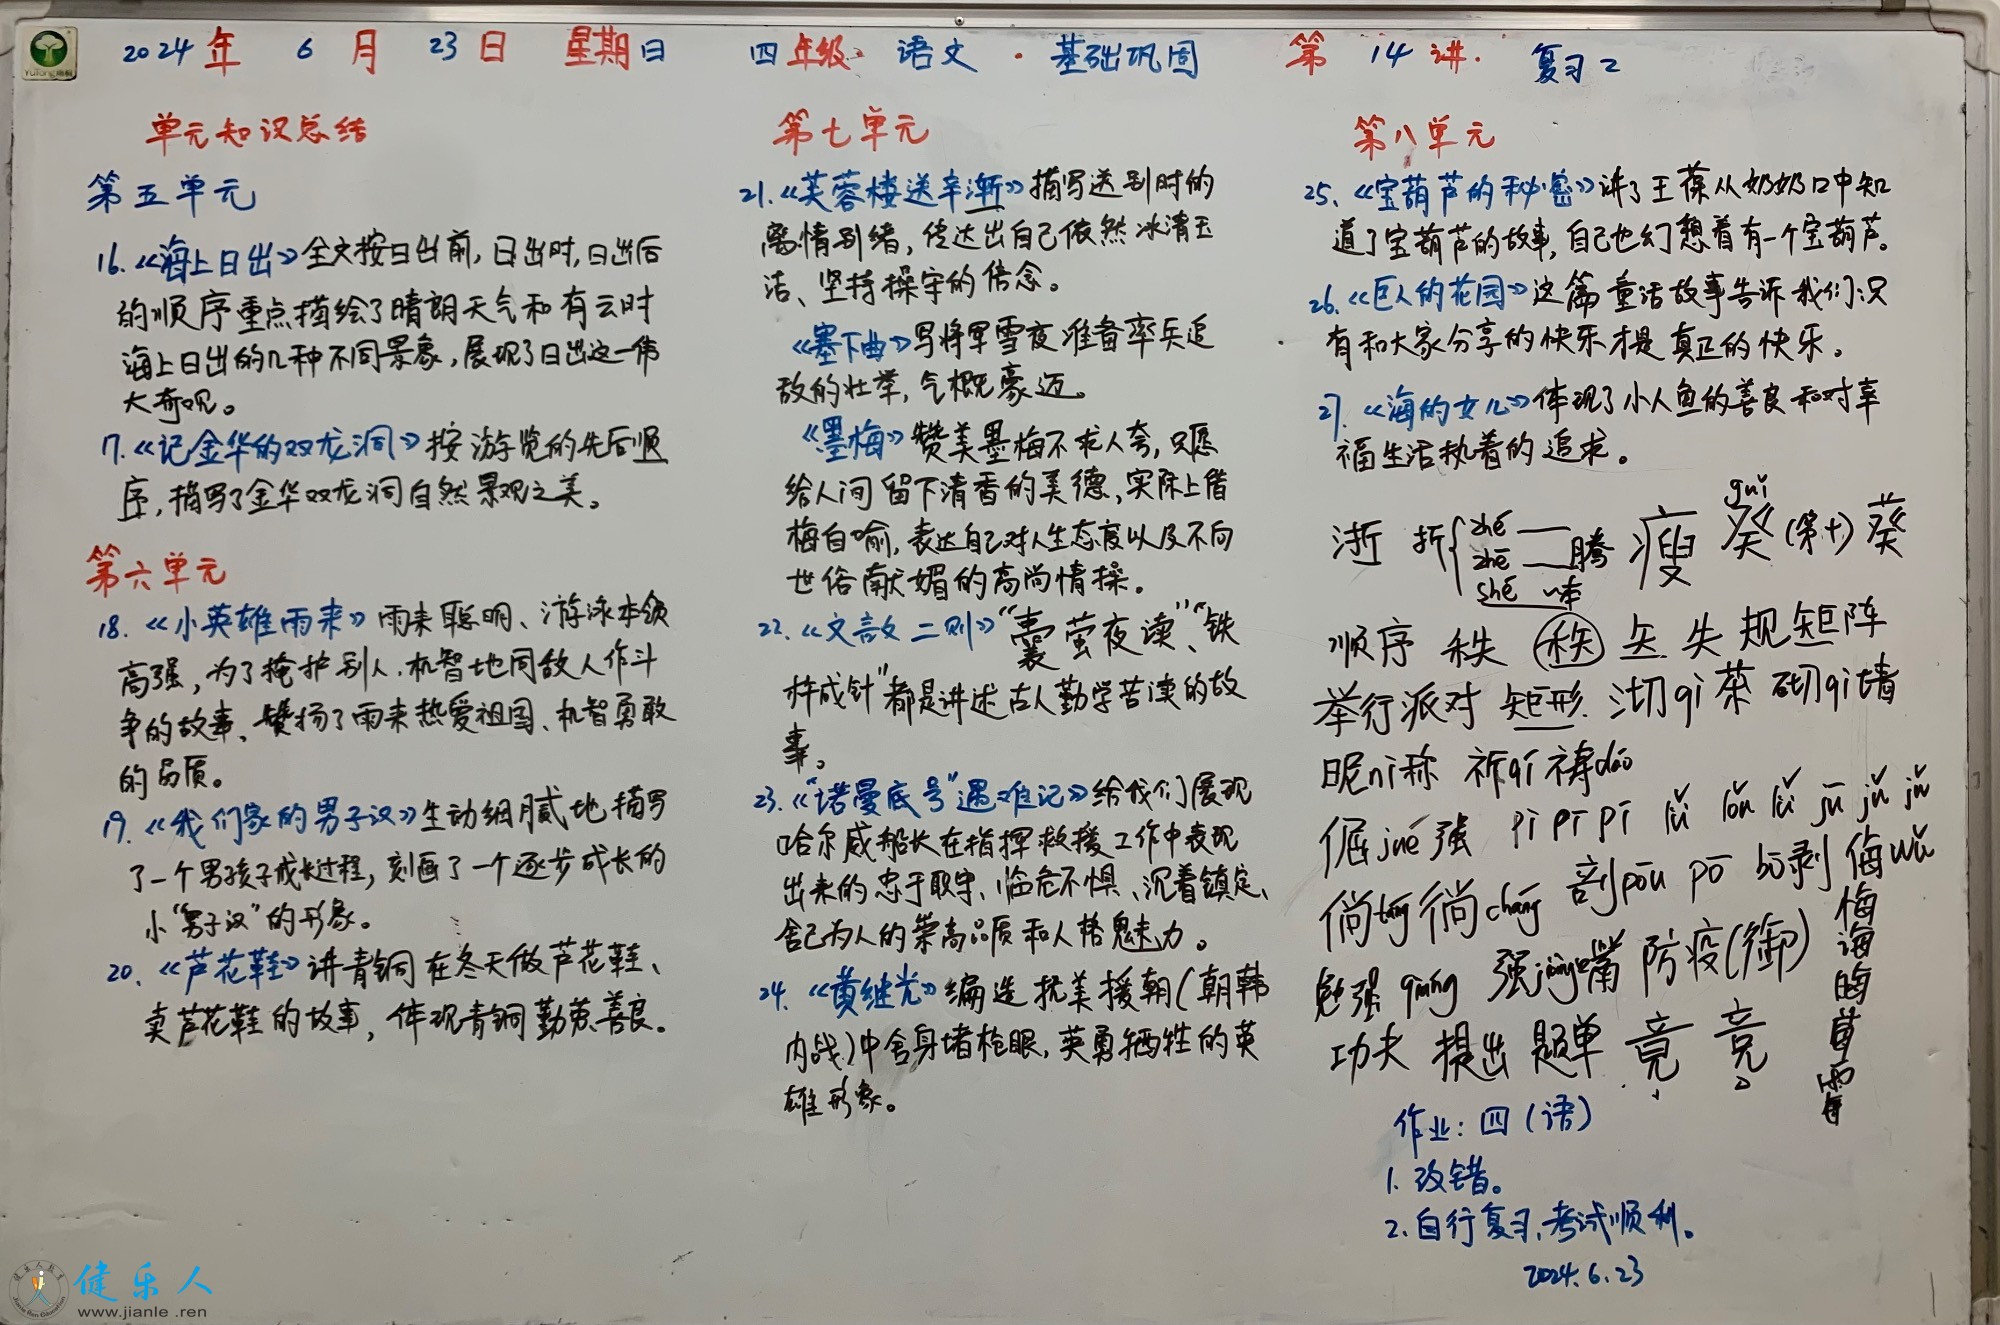 2024年 6月 23日 星期日 四年级·语文·基础巩固 第14讲· 复习2
单元知识总结
第五单元
16.《海上日出》全文按日出前,日出时,日出后
的顺序重点描绘了晴朗天气和有云时
海上日出的几种不同景象,展现了日出这一伟
大奇观。
17.《记金华的双龙洞》按游览的先后顺
序,描写了金华双龙洞自然景观之美。
第六单元
18.《小英雄雨来》雨来聪明、游泳本领
高强,为了掩护别人,机智地同敌人作斗
争的故事、赞扬了雨来热爱祖国、机智勇敢
的品质。
19.《我们家的男子汉》生动细腻地描写
了一个男孩子成长过程,刻画了一个逐步成长的
小“男子汉”的形象。
20.《芦花鞋》讲青铜在冬天做芦花鞋、
卖芦花鞋的故事,体现青铜勤劳善良。
第七单元
21.《芙蓉楼送辛渐》描写送别时的
离情别绪,传达出自己依然冰清玉
洁、坚持操守的信念。
《塞下曲》写将军雪夜准备率兵追
敌的壮举,气概豪迈。
《墨梅》赞美墨梅不求人夸,只愿
给人间留下清香的美德,实际上借
梅自喻,表达自己对人生态度以及不向
世俗献媚的高尚情操。
22.《文言文二则》“囊萤夜读”、“铁
杵成针”都是讲述古人勤学苦读的故
事。
23.《“诺曼底号”遇难记》给我们展现
哈尔威船长在指挥救援工作中表现
出来的忠于职守、临危不惧、沉着镇定、
舍己为人的崇高品质和人格魅力。
24.《黄继光》编选抗美援朝(朝韩
内战)中舍身堵枪眼,英勇牺牲的英
雄形象。
第八单元
25.《宝葫芦的秘密》讲了王葆从奶奶口中知
道了宝葫芦的故事,自己也幻想着有一个宝葫芦。
26.《巨人的花园》这篇童话故事告诉我们:只
有和大家分享的快乐才是真正的快乐。
27.《海的女儿》体现了小人鱼的善良和对幸
福生活执着的追求。
浙 折 zhé zhē 腾 shé 本 瘦 guǐ 癸(第十)葵
顺序 秩 秩 矢 失 规矩阵
举行派对 矩形 沏qī茶 砌qì墙
昵nì称 祈qí祷dǎo
倔jué强 pī pǐ pī lǚ lǒu lǚ jū jǔ jǔ
倘tǎng 徜cháng 剖pōu pō bō剥 侮wǔ
悔
海
晦
莓
霉
勉强qiǎng 强jiàng嘴 防疫(御)
功夫 提出 题单 竟 竞
作业:四(语)
1.改错。
2.自行复习,考试顺利。
2024.6.23
健乐人
www.jianle.ren